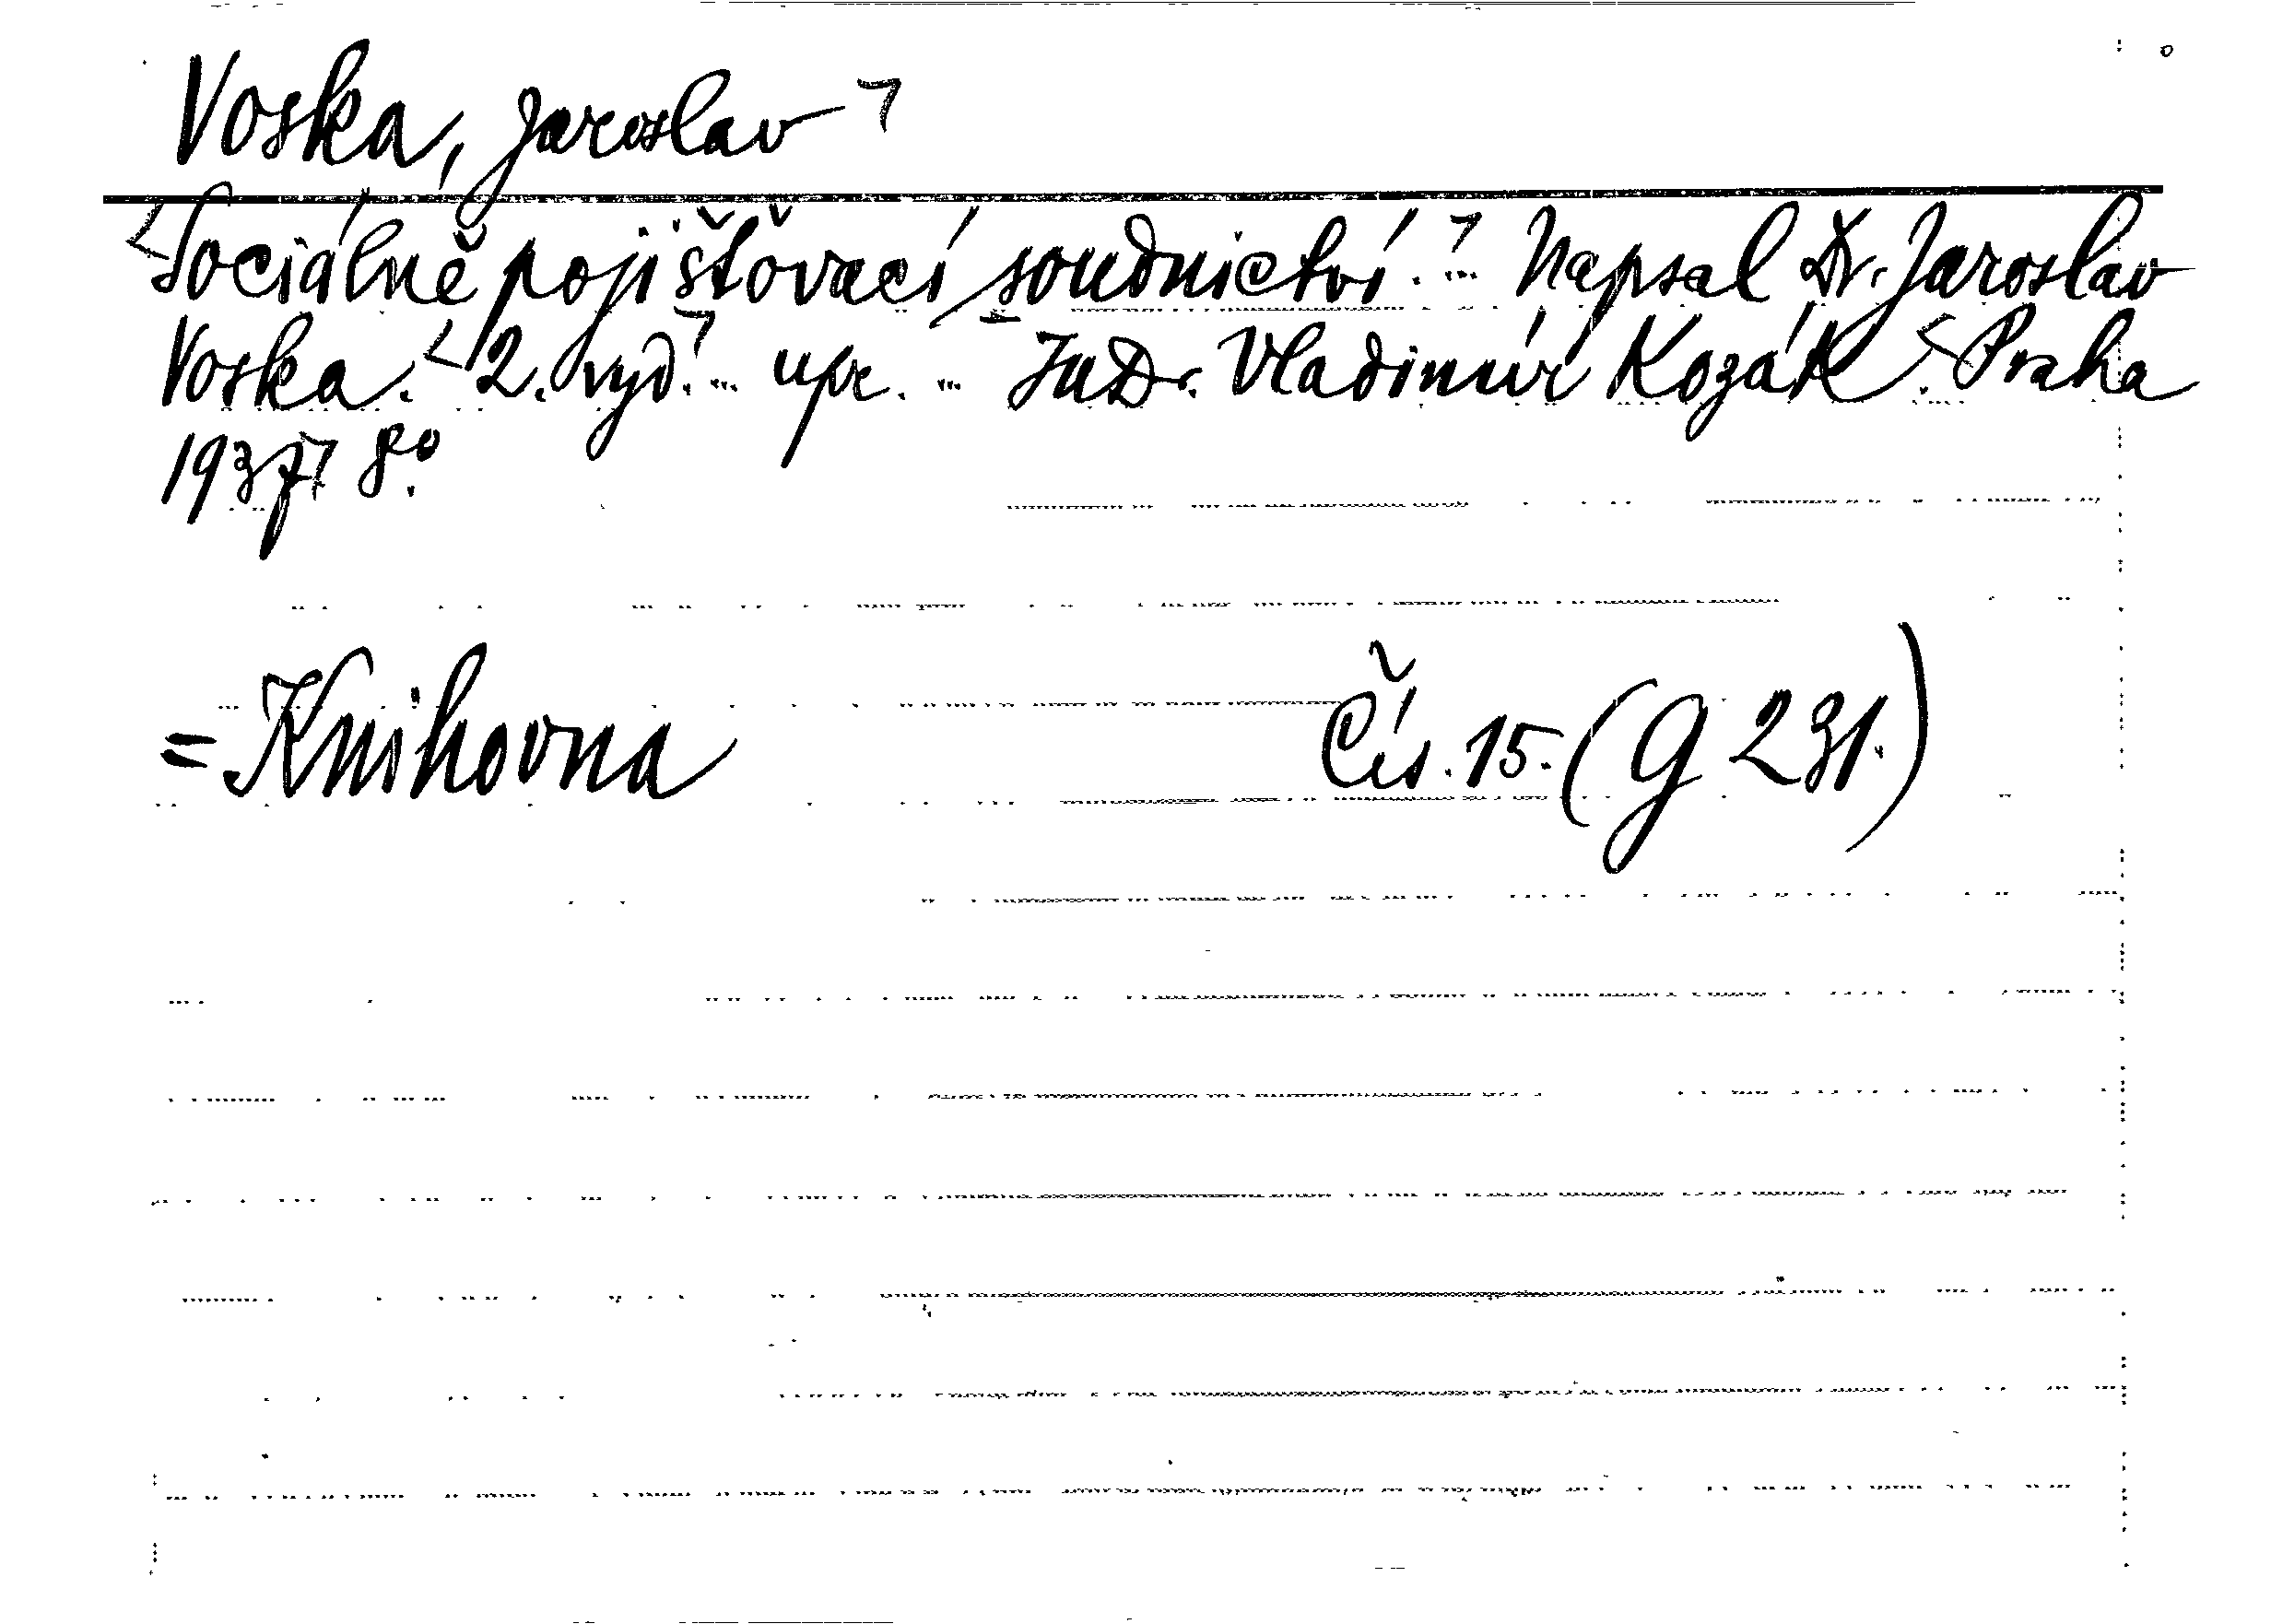 Voska, Jaroslav
Sociálně pojišťovací soudnictví. ... Napsal Dr. Jaroslav
Voska. 2. vyd. ... upr. ... JUDr. Vladimír Kozák. Praha
1937 8°.
= Knihovna Čís. 15. (G 231.)